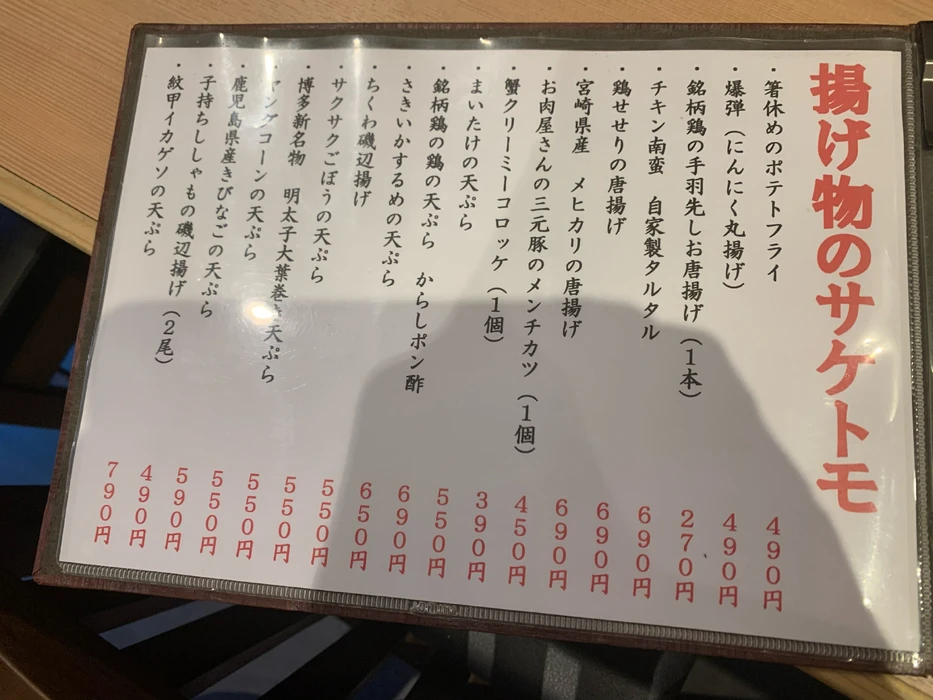 揚げ物のサケトモ
・箸休めのポテトフライ 490円
・爆弾（にんにく丸揚げ） 490円
・銘柄鶏の手羽先しお唐揚げ（1本） 270円
・チキン南蛮　自家製タルタル 690円
・鶏せせりの唐揚げ 690円
・宮崎県産　メヒカリの唐揚げ 690円
・お肉屋さんの三元豚のメンチカツ（1個） 450円
・蟹クリーミーコロッケ（1個） 390円
・まいたけの天ぷら 550円
・銘柄鶏の鶏の天ぷら　からしポン酢 690円
・さきいかするめの天ぷら 650円
・ちくわ磯辺揚げ 550円
・サクサクごぼうの天ぷら 550円
・博多新名物　明太子大葉巻き天ぷら 550円
・ヤングコーンの天ぷら 550円
・鹿児島県産きびなごの天ぷら 590円
・子持ちししゃもの磯辺揚げ（2尾） 490円
・紋甲イカゲソの天ぷら 790円